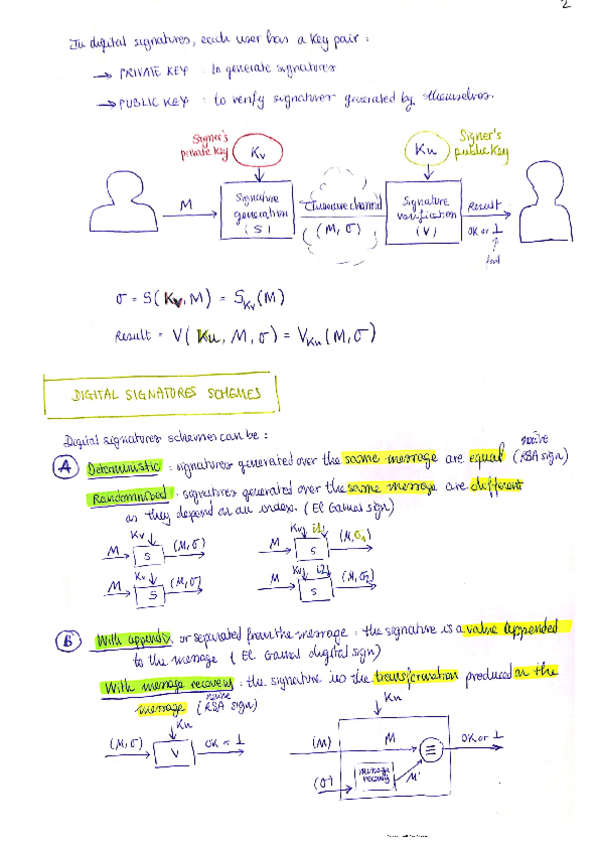 2
In digital signatures, each user has a key pair:
→ PRIVATE KEY : to generate signatures
→ PUBLIC KEY : to verify signatures generated by themselves.
Signer's private key
Kv
Ku
Signer's public key
M
Signature generation (S)
Insecure channel
(M, σ)
Signature verification (V)
Result
OK or ⊥
σ = S(Kv, M) = S_Kv(M)
Result = V(Ku, M, σ) = V_Ku(M, σ)
DIGITAL SIGNATURES SCHEMES
Digital signatures schemes can be:
A Deterministic : signatures generated over the same message are equal (naive RSA sign)
Randomized : signatures generated over the same message are different
as they depend on an index. (El Gamal sign)
Kv
M S (M, σ)
Kv, i1
M S (M, σ1)
Kv
M S (M, σ)
Kv, i2
M S (M, σ2)
B With appendix or separated from the message : the signature is a value appended
to the message (El Gamal digital sign)
With message recovery : the signature is the transformation produced on the
message (naive RSA sign)
Ku
(M, σ) V OK or ⊥
Ku
(M) M ≡ OK or ⊥
(σ) message recovery M'